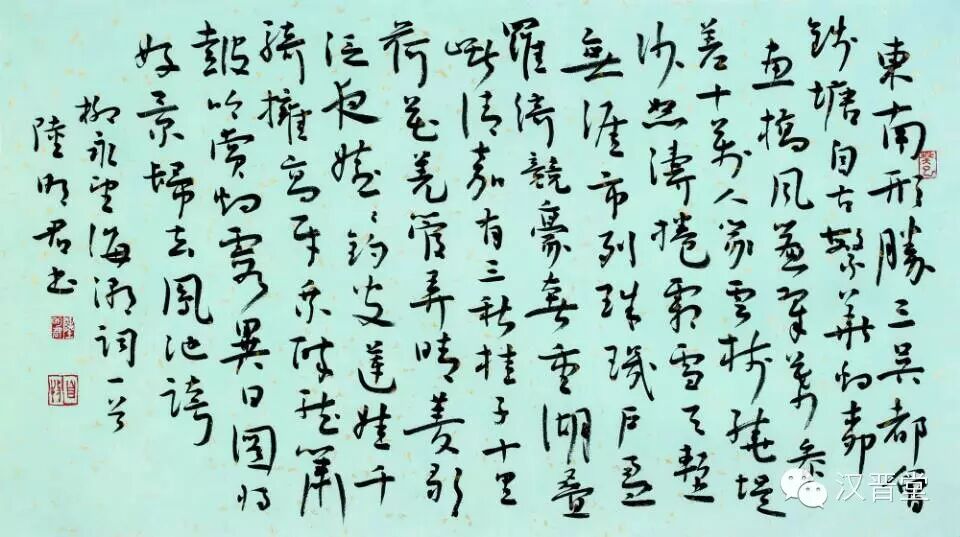 東南形勝三吳都會
錢塘自古繁華烟柳
畫橋風簾翠幕參
差十萬人家雲樹繞堤
沙怒濤捲霜雪天塹
無涯市列珠璣戶盈
羅綺競豪奢重湖疊
巘清嘉有三秋桂子十里
荷花羌管弄晴菱歌
泛夜嬉〻釣叟蓮娃千
騎擁高牙乘醉聽簫
鼓吟賞烟霞異日圖將
好景歸去鳳池誇
柳永望海潮詞一首
陸明君書
汉晋堂